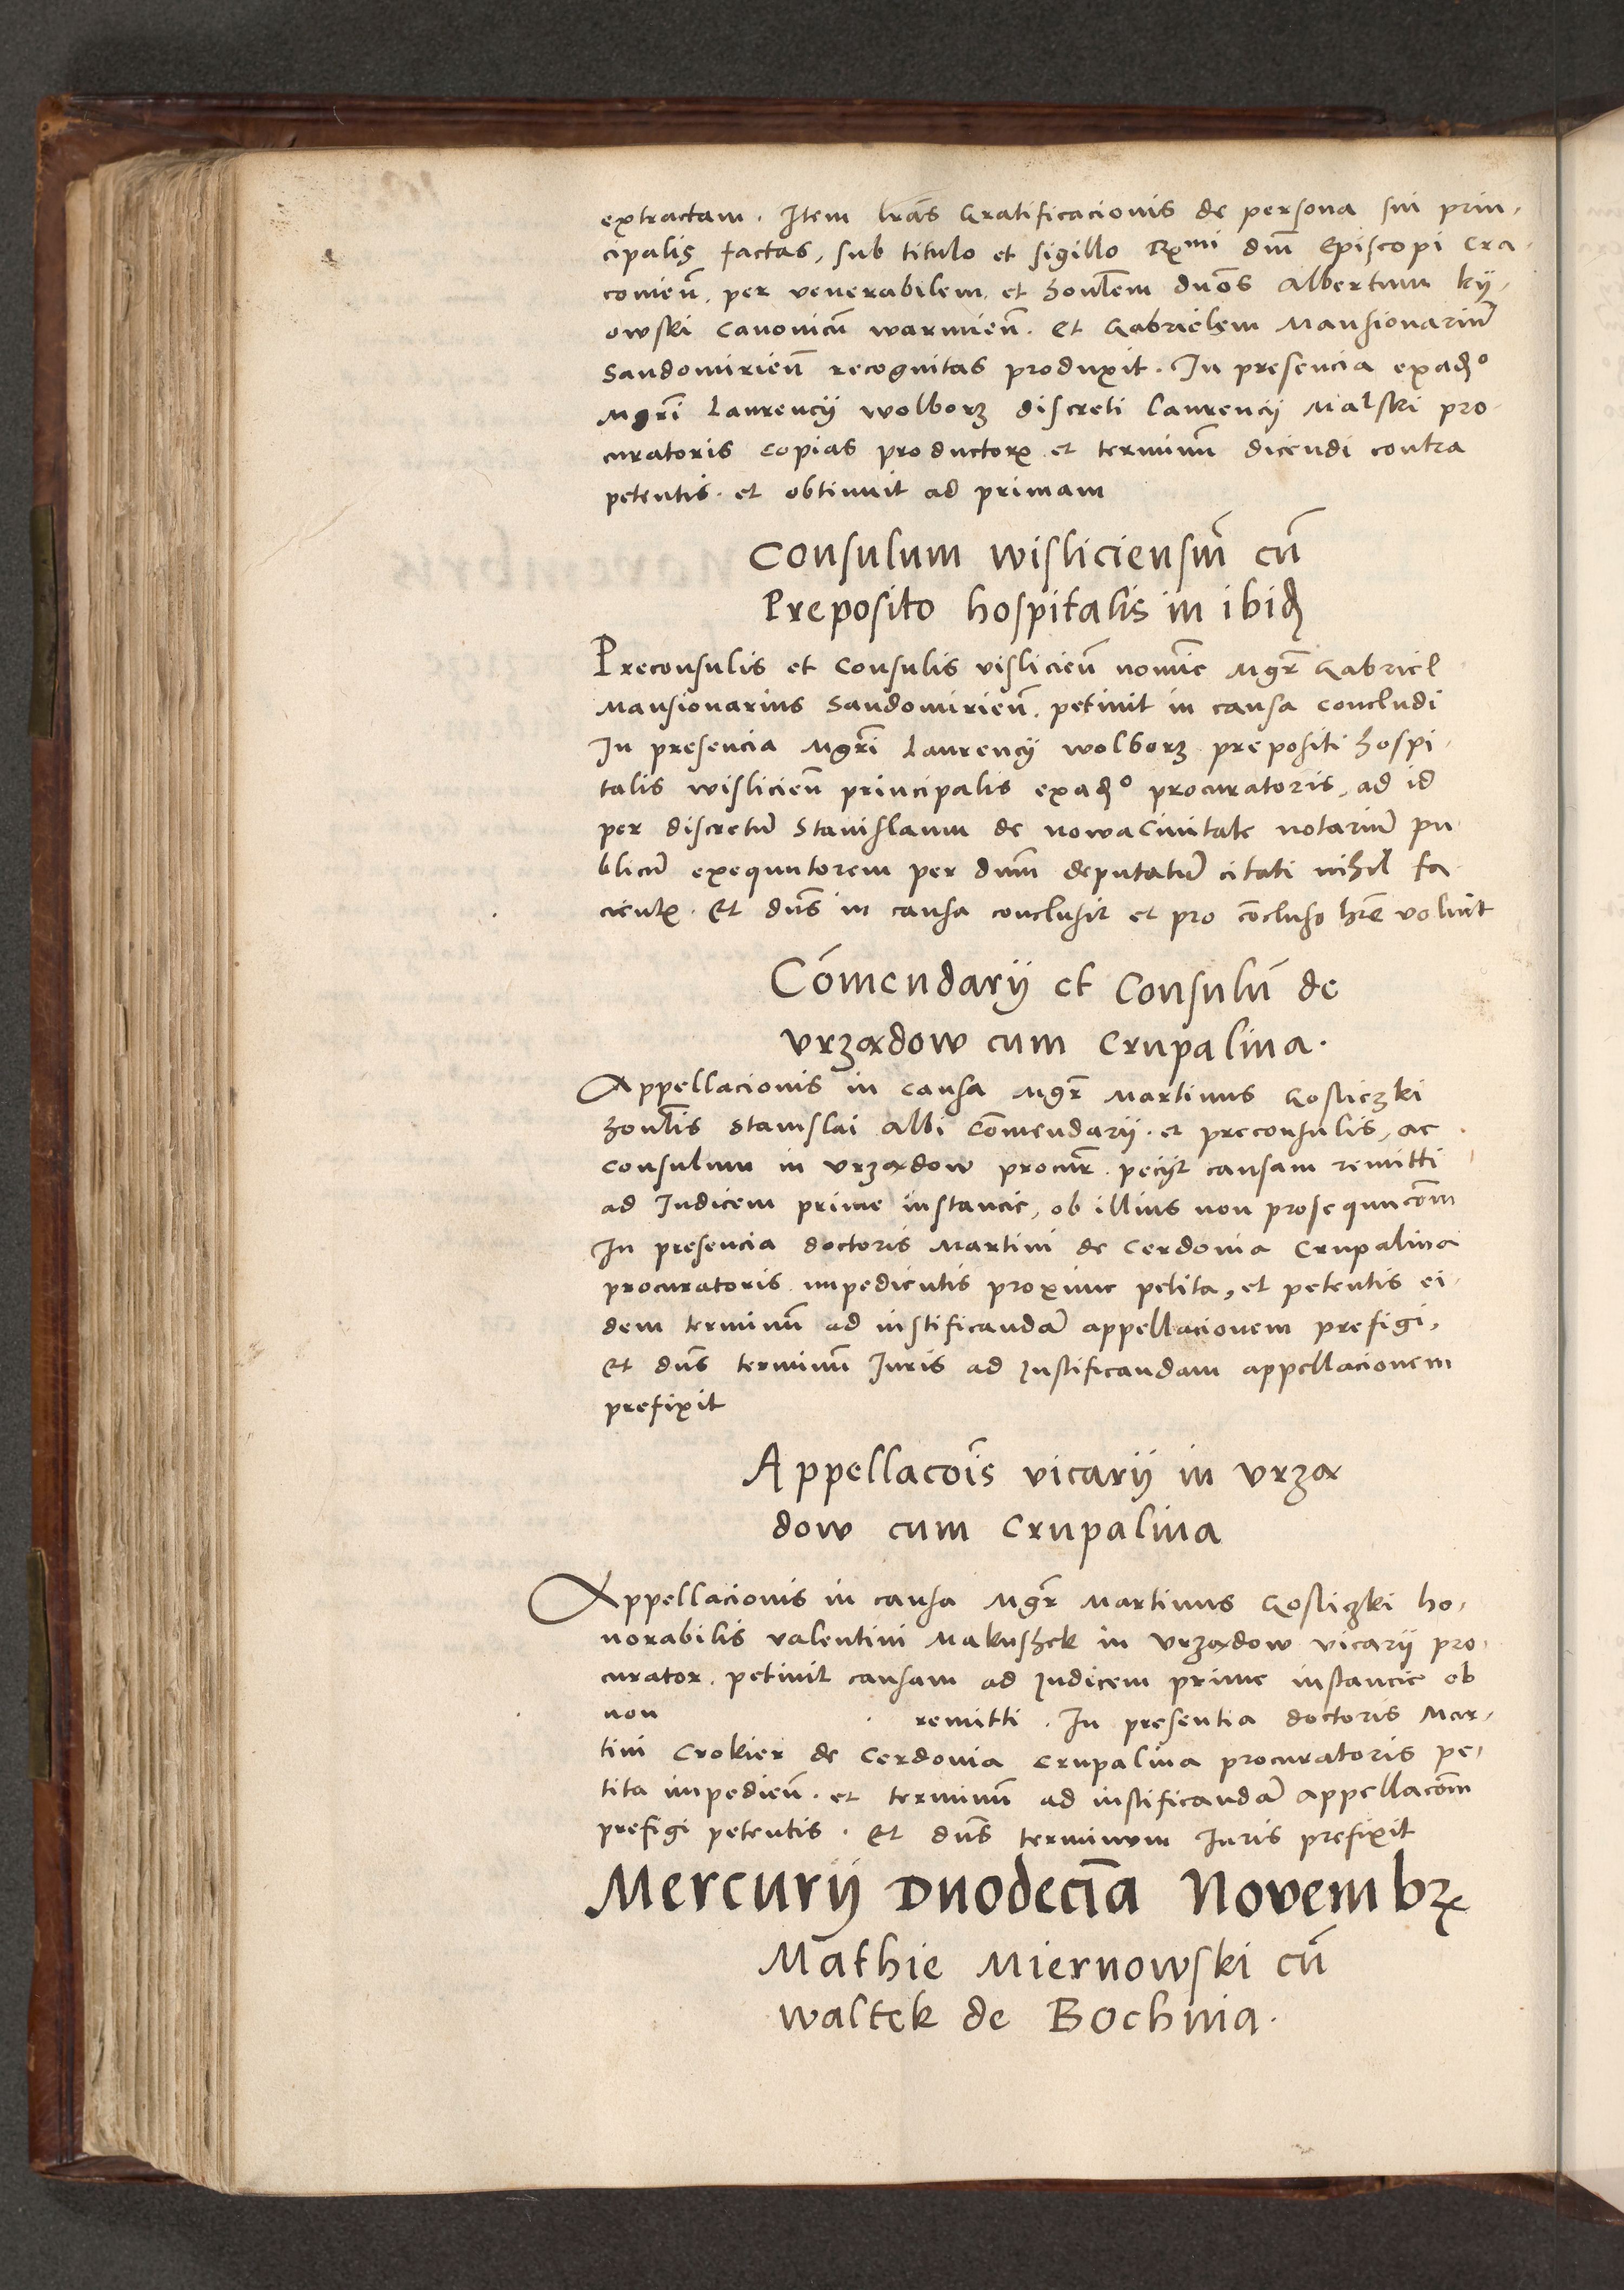 extractam. Item lras̄ Gratificacionis de persona sui prin-
cipalis factas, sub titulo et sigillo Rxmi dni̅ Episcopi Cra-
comien̄. per venerabilem. et hon̄lem dnōs Albertum kÿ-
owski Canonicū warmien̄. et Gabrielem Mansionariū
Sandomirien̄ recognitas produxit. In presencia exadꝰ
Mgrī Laurencÿ wolborz discreti Laurencÿ Malski pro-
curatoris copias productorꝝ et terminū dicendi contra
petentis. et obtinuit ad primam
Consulum wisliciensiū cū
Preposito hospitalis in ibid
Preconsulis et Consulis vislicien̄ nomīe Mgr̄ Gabriel
Mansionarius Sandomirien̄. petiuit in causa concludi
In presencia Mgrī Laurencÿ wolborz prepositi hospi-
talis wislicien̄ principalis exadꝰ procuratoris, ad id
per discretū Stanislaum de nowa Ciuitate notariū pu
blicū exequutorem per dnm̄ deputatū citati nihil fa-
cientꝭ. Et dns̄ in causa conclusit et pro cōcluso hrē voluit
Cōmendarÿ et Consulū de
vrzadow cum Crupalina.
Appellacionis in causa Mgr̄ Martinus Gosliczki
hon̄lis Stanislai Albi Cōmendarÿ. et preconsulis, ac
consulum in vrzadow procur̄. pecÿt causam remitti
ad Iudicem prime instancie, ob illius non prosequucōm
In presencia doctoris Martini de Cerdonia Crupalina
procuratoris impedientis proxime petita, et petentis ei-
dem terminū ad iustificandā appellacionem prefigi,
Et dns̄ terminū Iuris ad Iustificandam appellacionem
prefixit
Appellacoīs vicarÿ in vrza
dow cum Crupalina
Appellacionis in causa Mgr̄ Martinus Gosliczki ho-
norabilis valentini Makushek in vrzadow vicarÿ pro-
curator. petiuit causam ad Iudicem prime instancie ob
non remitti. In presentia doctoris Mar-
tini Crokier de Cerdonia Crupalina procuratoris pe-
tita impedien̄. et terminū ad iustificandā appellacōm
prefigi petentis. Et dns̄ terminum Iuris prefixit
Mercurÿ Duodecīa Novembrꝭ
Mathie Miernowski cū
waltek de Bochnia.